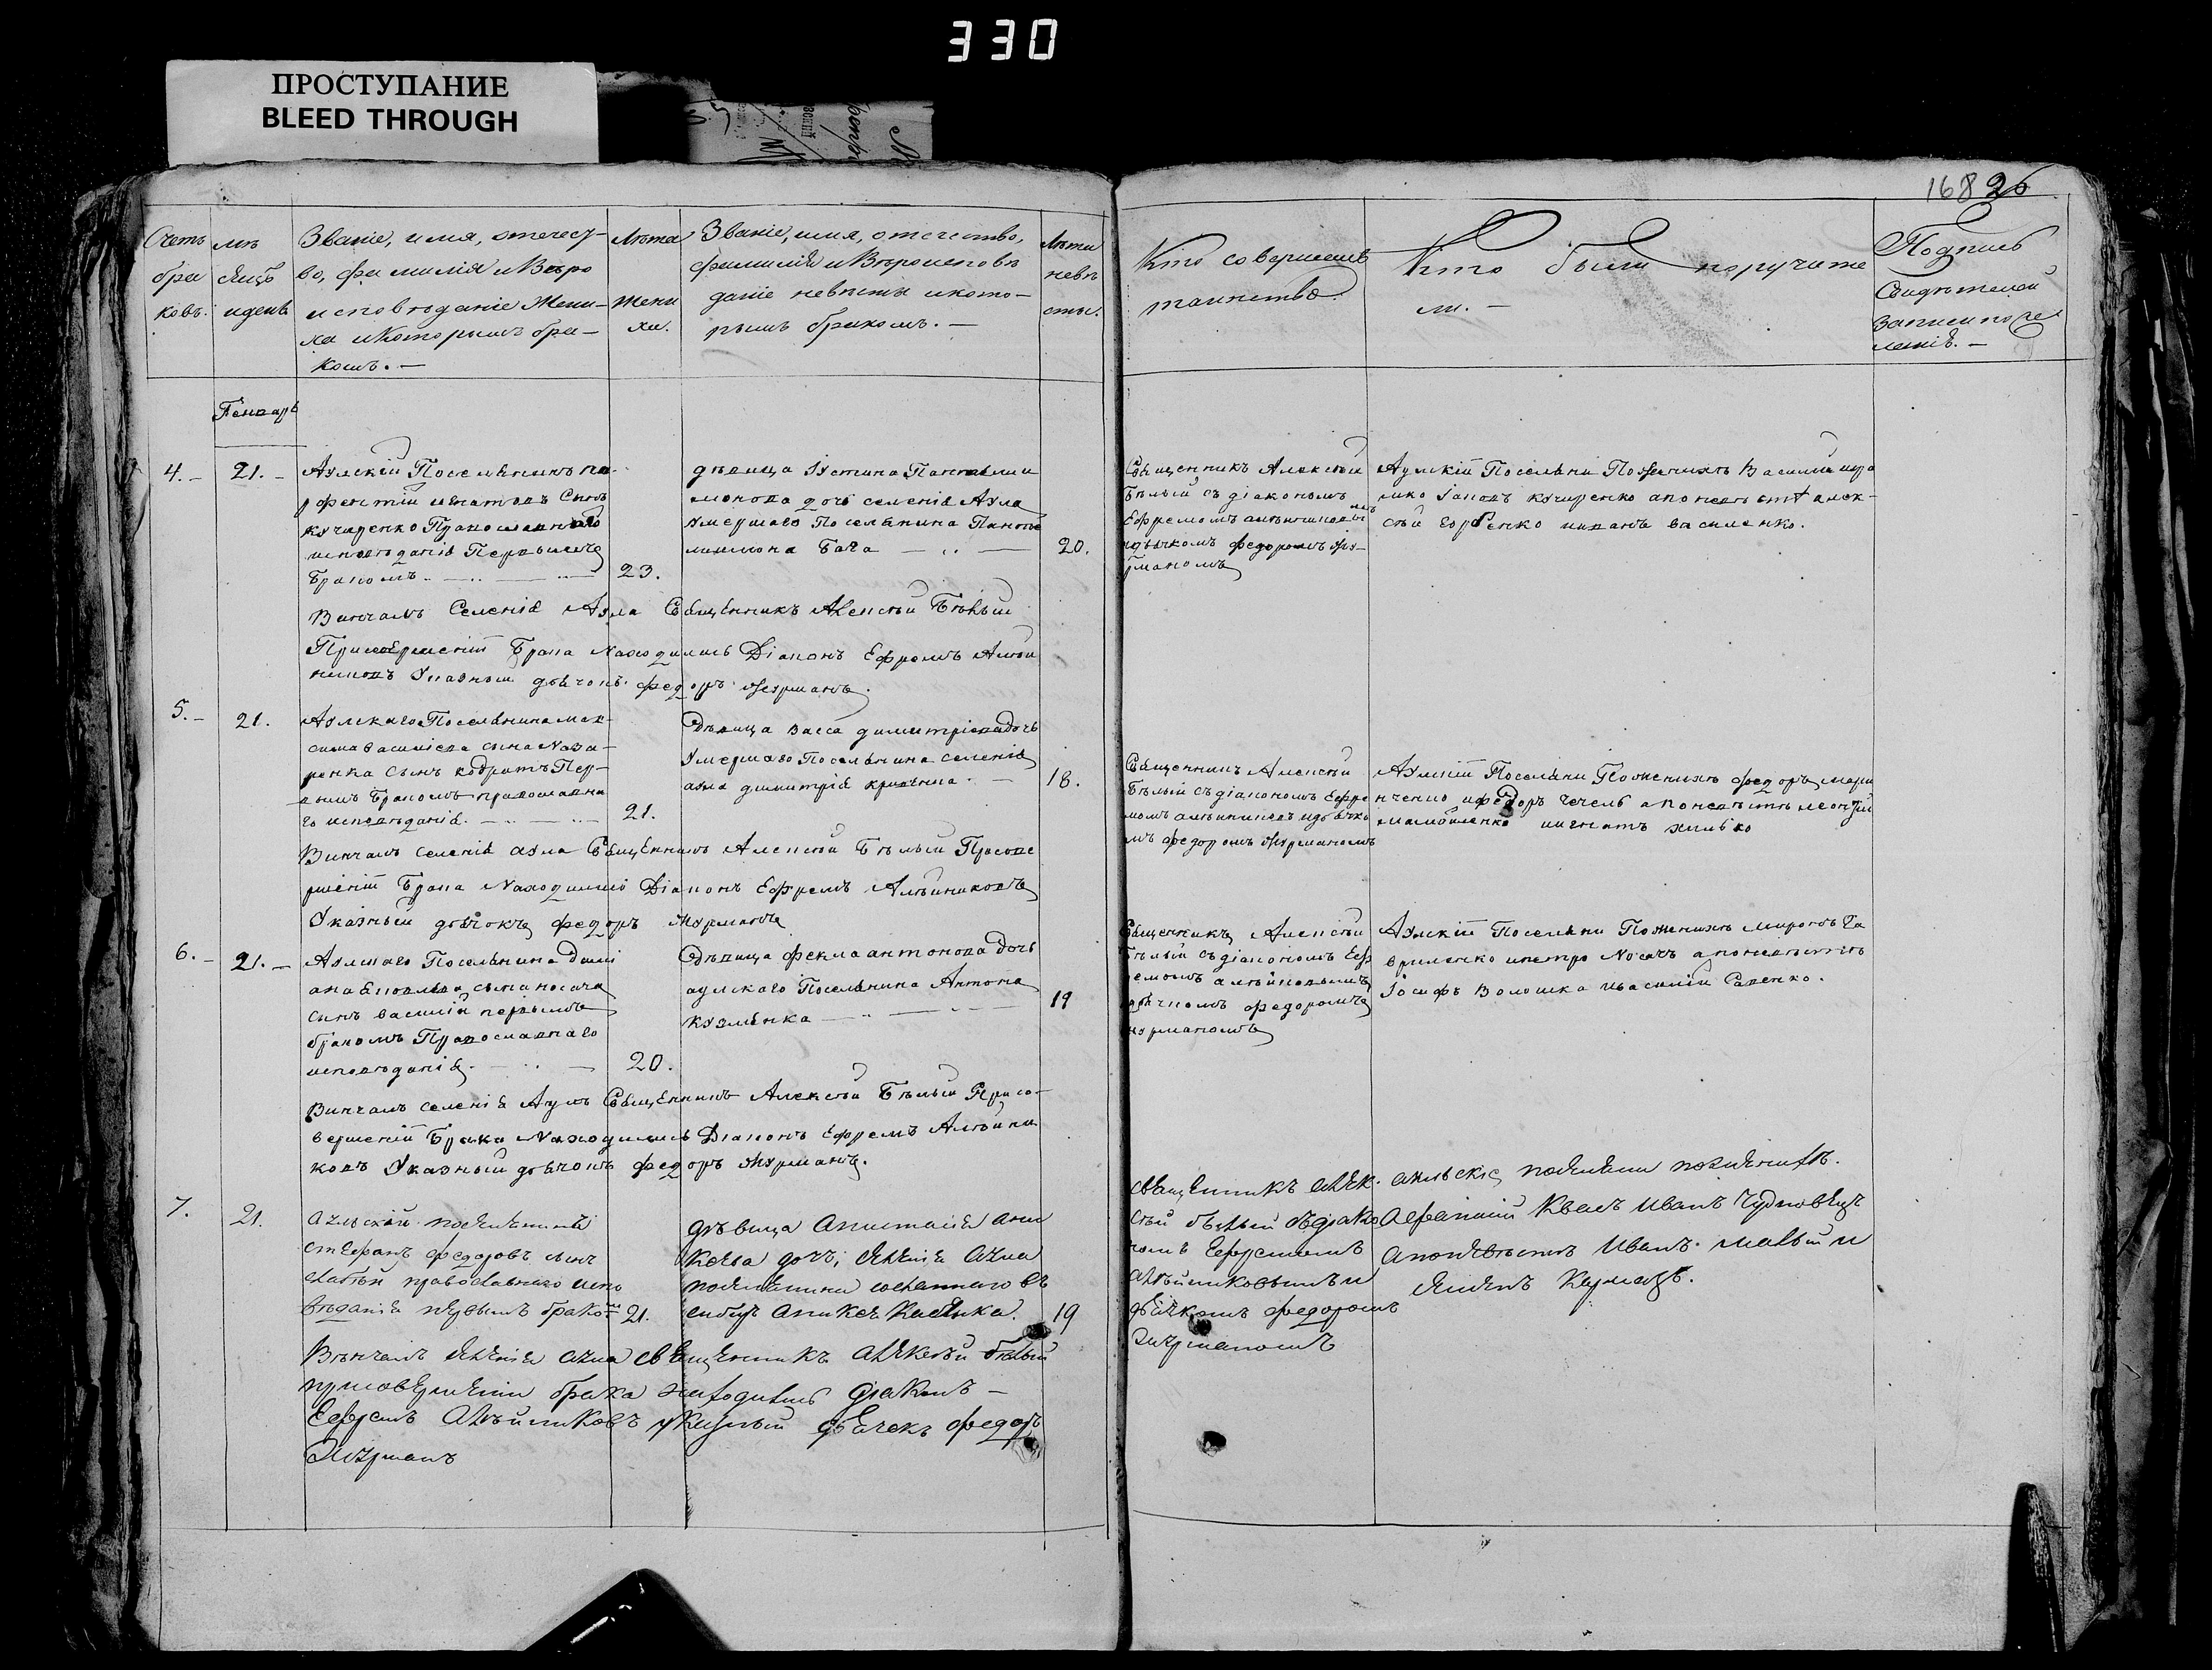 330
ПРОСТУПАНИЕ
BLEED THROUGH
168 26
Счетъ
бра
ковъ.
мѣ
сяцъ
и день
Званіе, имя, отечест-
во, фамилія и Вѣро
исповѣданіе Жени-
ха и Которымъ бра-
комъ. —
Лѣта
Жени
ха.
Званіе, имя, отечество,
фамилія и Вѣроисповѣ
даніе невѣсты и кото-
рымъ бракомъ. —
Лѣта
невѣ
сты.
Кто совершалъ
таинство.
Кто были поручите
ли. —
Подпись
Свидѣтелей
записи по же
ланію. —
Генварь
4. —
21. —
Аулскій Поселянинъ
Игнатовъ Сынъ
Кучиренко Православнаго
исповѣданія Первымъ
Бракомъ. — 23.
дѣвица Іустина Пантели
монова дочь селенія Аула
Умершаго Поселянина Панте
лимона Гача — 20.
Священникъ Алексѣй
Бѣлый съ діакономъ
Ефремомъ
и дьячкомъ Федоромъ Жу-
рманомъ
Аулскій Поселяни По женихѣ Василій
Іаковъ Кучиренко а по невѣстѣ Алек-
сѣй Горбенко и иванъ василенко.
Винчалъ Селенія Аула Священникъ Алексѣй Бѣлый
При совершеніи Брака Находились Діаконъ Ефремъ Алѣй
никовъ Указный дьячокъ федоръ Журманъ.
5. —
21.
Аулскаго Поселянина Мак-
сима василіева сына Наза-
ренка сынъ кодратъ Пер-
вымъ Бракомъ православна
го исповѣданія. — 21.
Дѣвица Васса димитріева Дочь
Умершаго Поселянина селенія
аула димитрія — 18.
Священникъ Алексѣй
Бѣлый съ діакономъ Ефре
момъ и дьячко
мъ федоромъ Журманомъ
Аулскій Поселяни По женихѣ федоръ мари
нченко и федоръ чечель а по невѣстѣ леонтій
и игнатъ
Винчалъ селенія аула Священникъ Алексѣй Бѣлый При сове
ршеніи Брака Находились Діаконъ Ефремъ Алѣйниковъ
Указный дьячокъ федоръ Журманъ
6. —
21. —
Аулскаго Поселянина Деми
ана сына носача
сынъ василій первымъ
бракомъ Православнаго
исповѣданія. — 20.
Дѣвица фекла антонова Дочь
аулскаго Поселянина Антона
Кузмѣнка — 19
Священникъ Алексѣй
Бѣлый съ діакономъ Еф
ремомъ алѣйниковымъ
дьячкомъ федоромъ
журманомъ
Аулскій Поселяни По женихѣ миронъ Га
вриленко и петро Носачъ а по невѣстѣ
Іосифъ Волошка и василій Савенко.
Винчалъ селенія Аулъ Священникъ Алексѣй Бѣлый При со-
вершеніи Брака Находились Діаконъ Ефремъ Алѣйни
ковъ Указный дьячокъ федоръ Журманъ.
7.
21.
аульскій поселянинъ
стефанъ федоровъ сынъ
слабый православнаго испо
вѣданія первымъ бракомъ 21.
дѣвица анастасія ани
кѣева дочь, селенія аула
поселянина сосланнаго въ
сибирь аникея Касянка. 19
священникъ алек-
сѣй бѣлый съ діако
номъ Ефремомъ
алѣйниковымъ и
дьячкомъ федоромъ
Журманомъ
аульскіе поселяни по женихѣ.
Афанасій Квасъ Иванъ Чудновецъ
а по невѣстѣ Иванъ малый и
Симонъ
Вѣнчалъ селенія аула священникъ алексѣй бѣлый
при совершеніи брака находились діаконъ —
Ефремъ Алѣйниковъ указный дьячекъ федоръ
Журманъ